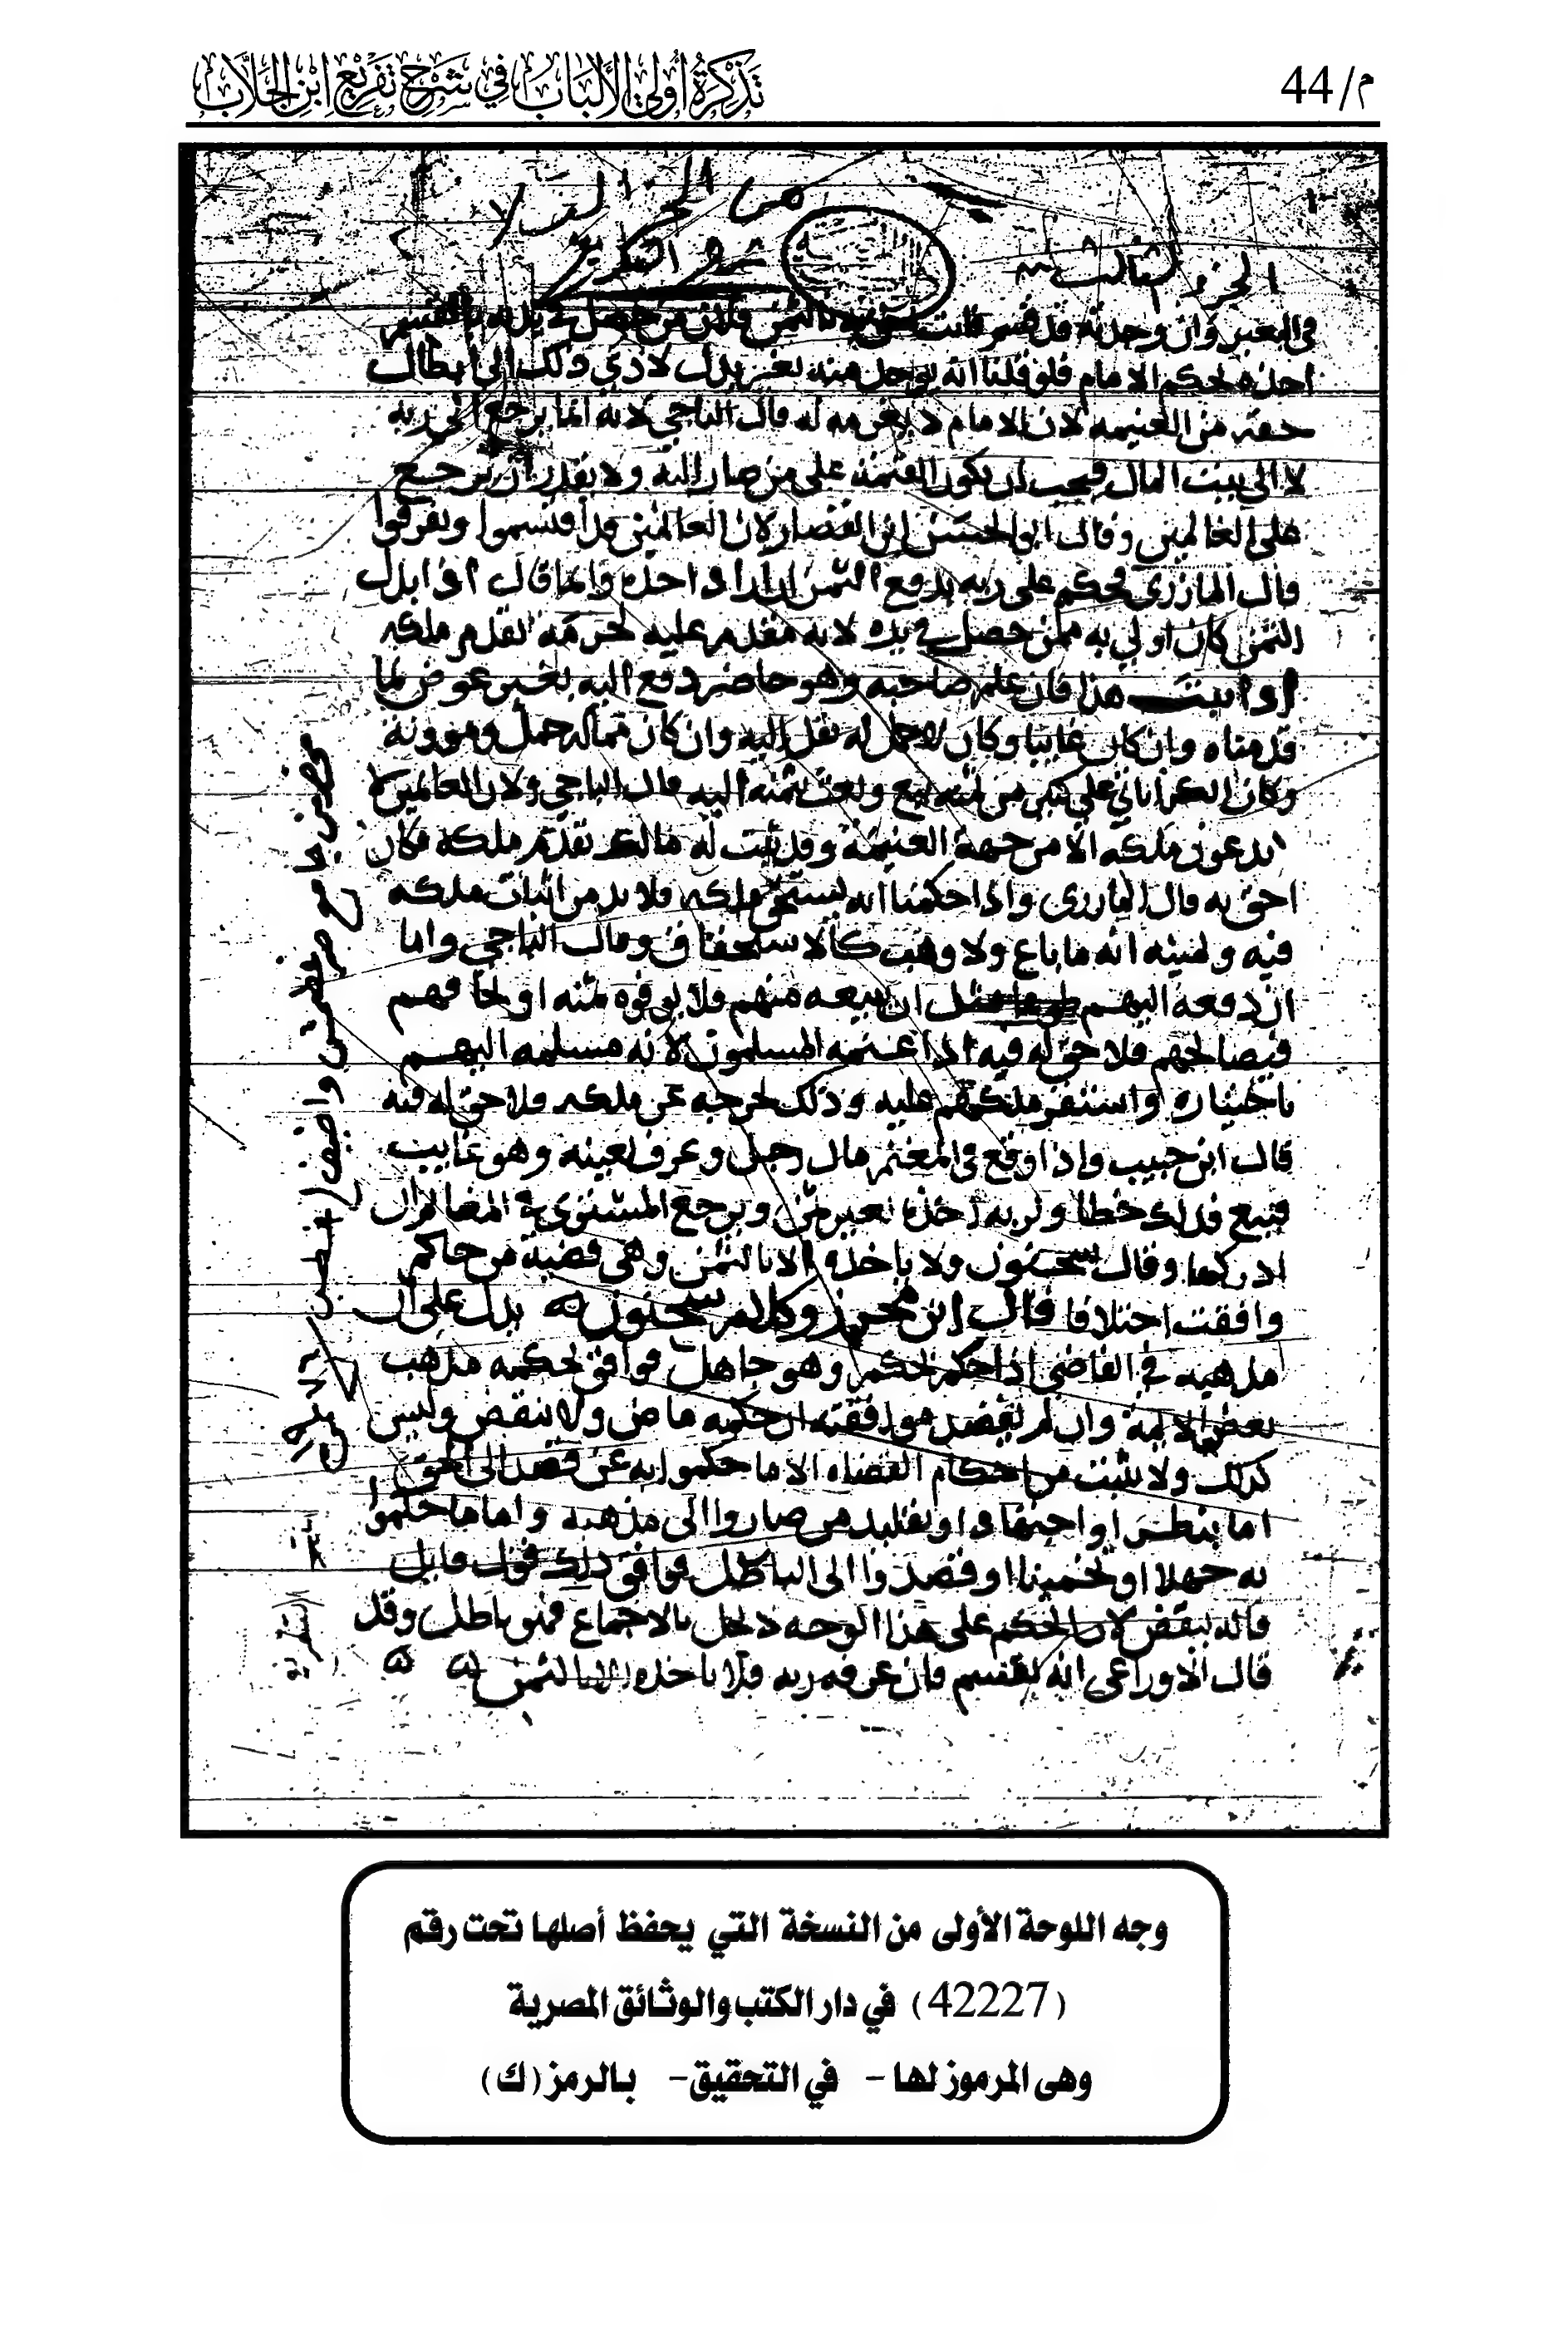 م/44
تَذْكِرَةُ أُولِي الأَلْبَابِ فِي شَرْحِ تَفْرِيعِ ابْنِ الجَلَّابِ
الجزء الثالث
من
في المغنم وان وجدته قد قسم فانت احق به بالثمن
اخذه بحكم الامام فلو قلنا انه يوخذ منه بغير بدل لادي ذلك الى ابطال
حقه من الغنيمه لان الامام لا يغرمه له قال الباجي لانه انما يرجع الى ربه
لا الى بيت المال فيجب ان يكون القيمة على من صار اليه ولا يقدر ان يرجع
على الغانمين وقال ابو الحسن ابن القصار لان الغانمين قد اقتسموا وتفرقوا
قال المازري فيحكم على ربه بدفع الثمن اذا اراد اخذه وانما قال اذا بذل
الثمن كان اولى به ممن حصل في يده لانه مقدم عليه لحرمة تقدم ملكه
اذا ثبت هذا فان علم صاحبه وهو حاضر دفع اليه بغير عوض لما
قدمناه وان كان غايبا وكان لا حمل له نقل اليه وان كان مما له حمل وموونة
وكان الكرا ياتي على من ثمنه بيع وبعث بثمنه اليه قال الباجي ولان الغانمين لا
يدعون ملكه الا من جهة الغنيمة وقد ثبت له مالك تقدم ملكه فكان
احق به قال المازري واذا حكمنا انه يستحق ملكه فلا بد من اثبات ملكه
فيه ويمينه انه ما باع ولا وهب كالاستحقاق وقال الباجي واما
ان دفعه اليهم مثل ان يبيعه منهم فلا يوفوه ثمنه او يخافهم
فيصالحهم فلا حق له فيه اذا غنمه المسلمون لانه مسلمه اليهم
باختياره واستقر ملكهم عليه وذلك يخرجه عن ملكه فلا حق له فيه
قال ابن حبيب واذا وقع في المغنم مال رجل وعرف بعينه وهو غايب
فبيع فذلك خطا ولربه اخذه بغير ثمن ويرجع المشتري في المغانم ان
ادركها وقال سحنون ولا ياخذه الا بالثمن وهي قضية من حاكم
وافقت اختلافا قال ابن محرز وكلام سحنون يدل على ان
مذهبه في القاضي اذا حكم بحكم وهو جاهل فوافق حكمه مذهب
بعض الايمة وان لم يقصد موافقته ان حكمه ماض ولا ينقض وليس
كذلك ولا يثبت من احكام القضاه الا ما حكموا به عن قصد الى الحق
اما بنظر او اجتهاد او تقليد من صاروا الى مذهبه واما ما حكموا
به جهلا او تخمينا او قصدوا الى الباطل فوافق ذلك قول قايل
قاله ينقض لان الحكم على هذا الوجه دخل بالاجماع فهو باطل وقد
قال الاوزاعي انه يقسم فان عرفه ربه فلا ياخذه الا بالثمن
وجه اللوحة الأولى من النسخة التي يحفظ أصلها تحت رقم
(42227) في دار الكتب والوثائق المصرية
وهى المرموز لها - في التحقيق - بالرمز (ك)